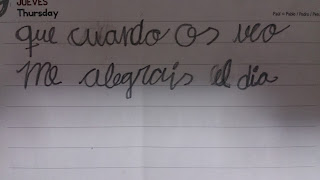 JUEVES
Thursday
que cuando os veo
Me alegrais el dia